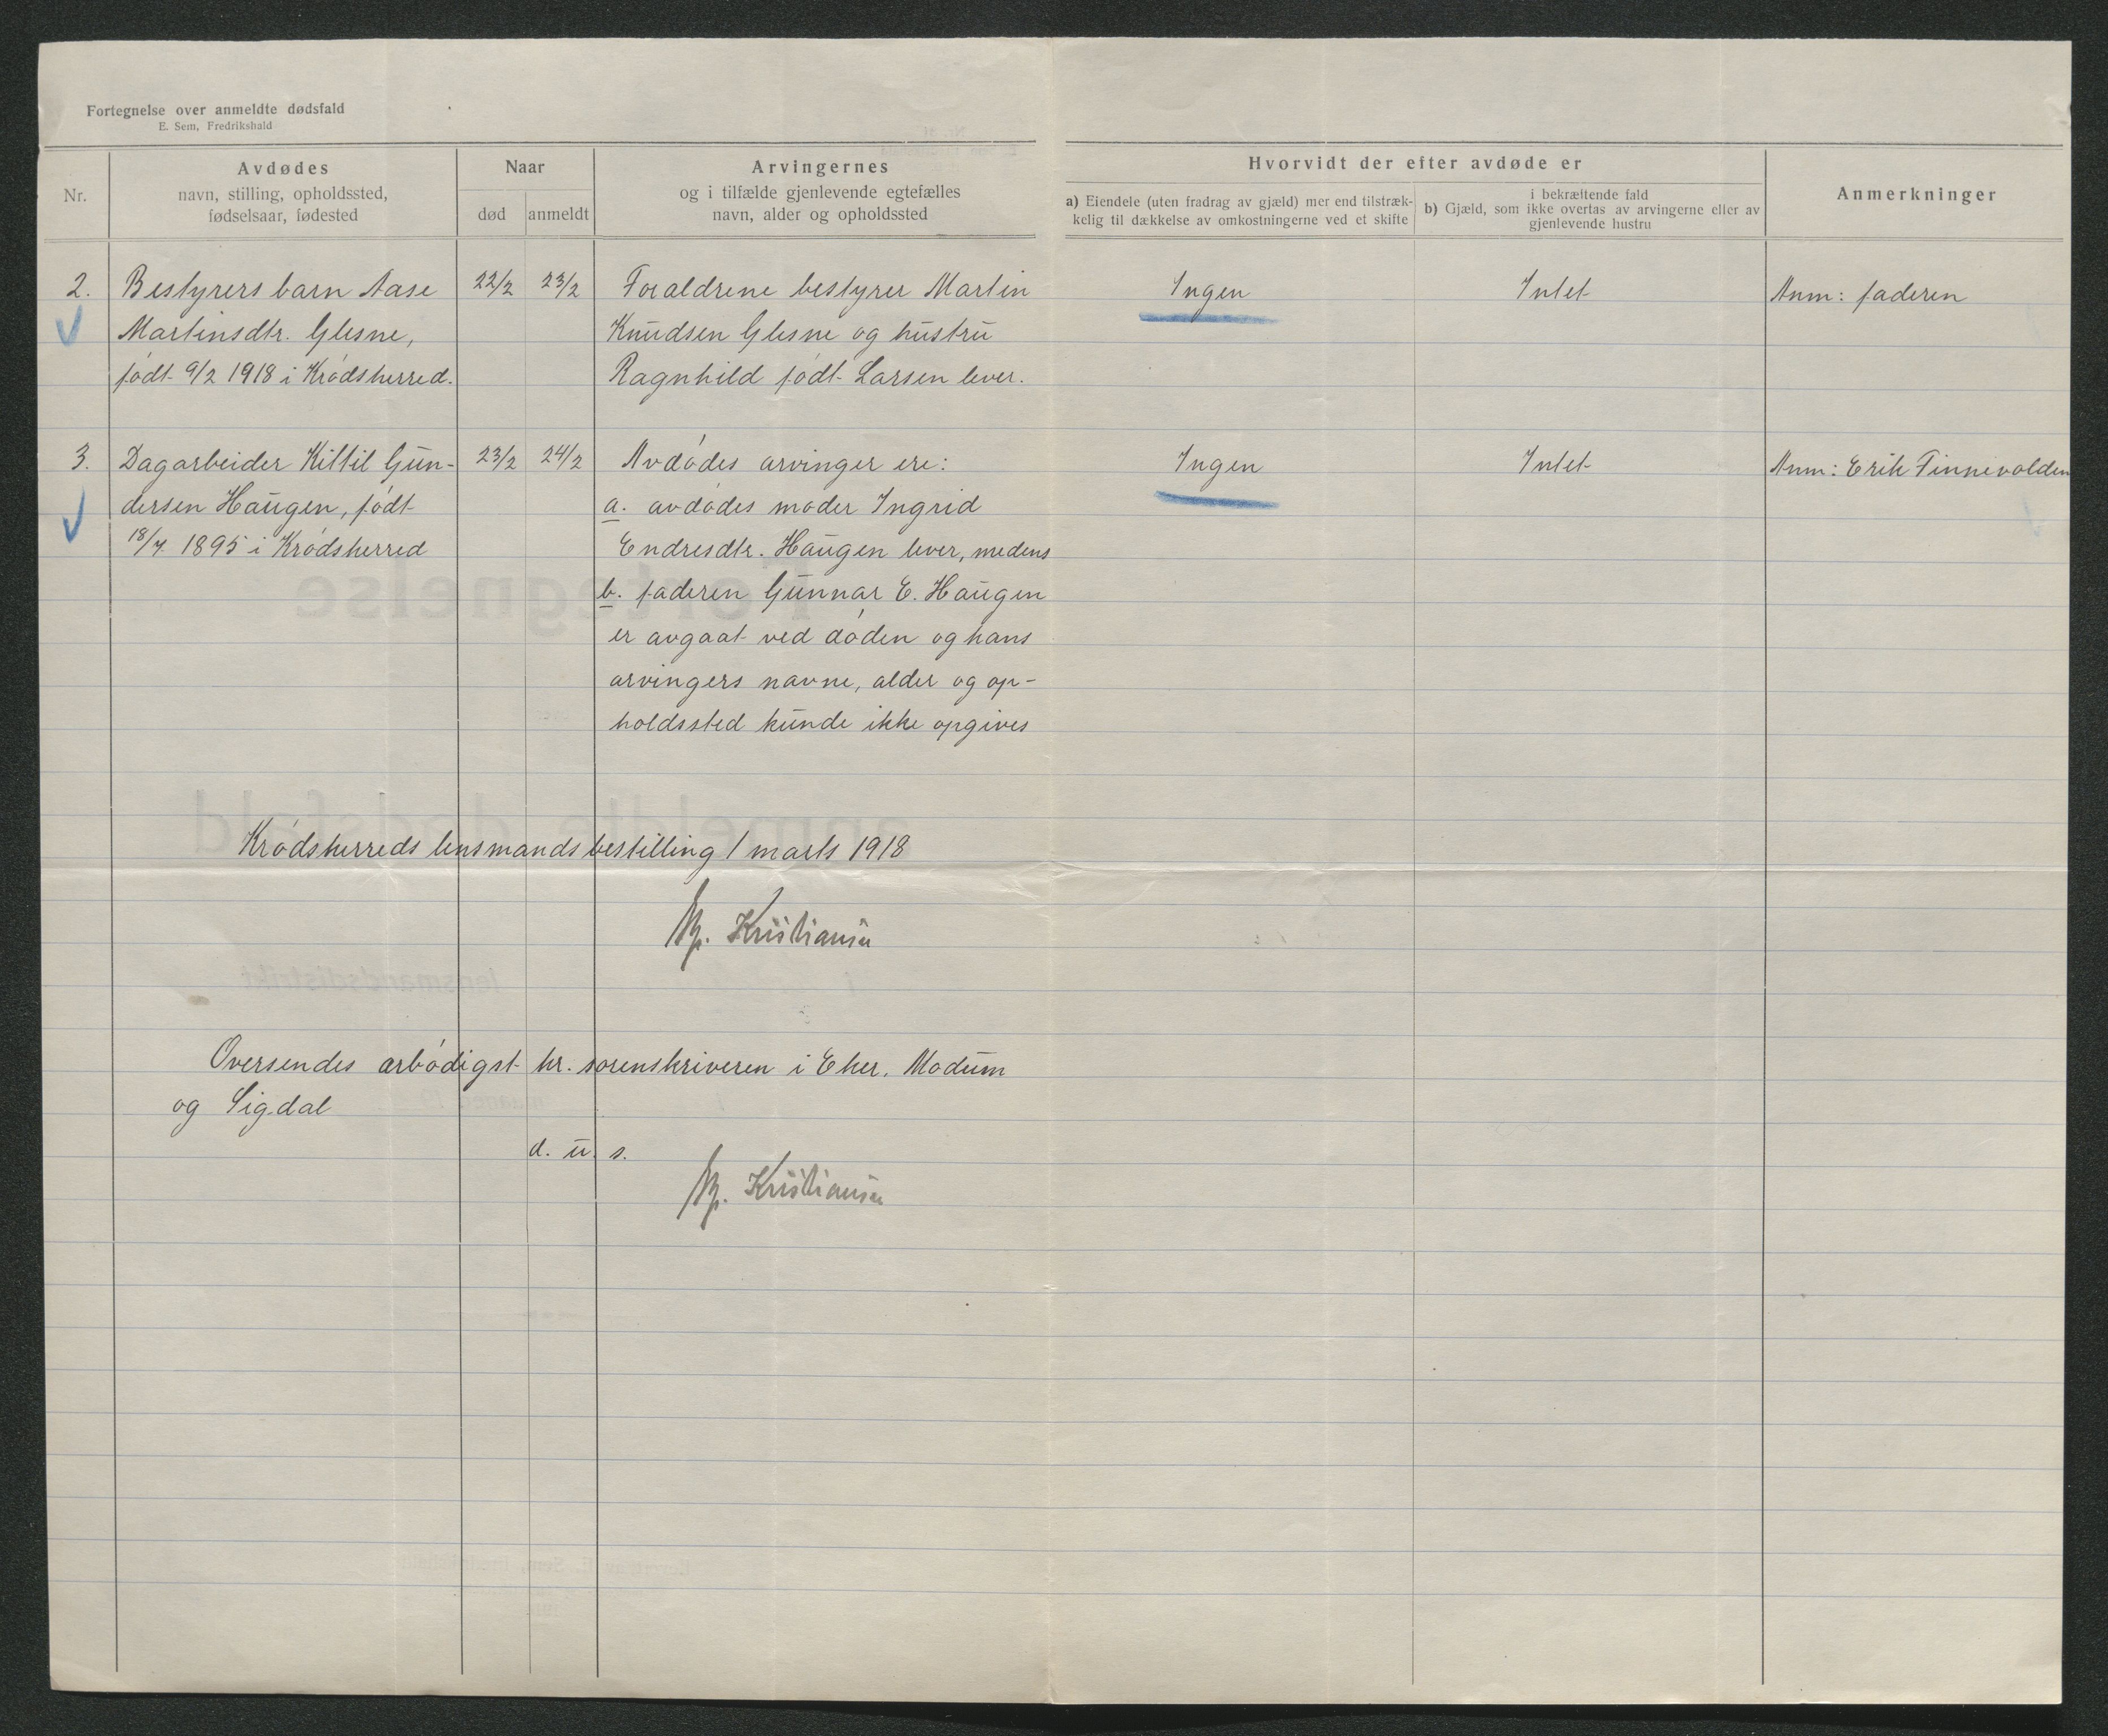 Fortegnelse over anmeldte dødsfald
E. Sem, Fredrikshald
Nr.
Avdødes
navn, stilling, opholdssted,
fødselsaar, fødested
Naar
død
anmeldt
Arvingernes
og i tilfælde gjenlevende egtefælles
navn, alder og opholdssted
Hvorvidt der efter avdøde er
a) Eiendele (uten fradrag av gjæld) mer end tilstræk-
kelig til dækkelse av omkostningerne ved et skifte
i bekræftende fald
b) Gjæld, som ikke overtas av arvingerne eller av
gjenlevende hustru
Anmerkninger
2.
Bestyrers barn Aase
Martinsdtr. Glesne,
født 9/2 1918 i Krødsherred.
22/2
23/2
Foraldrene bestyrer Martin
Knudsen Glesne og hustru
Ragnhild født Larsen lever.
Ingen
Intet
Anm: faderen
3.
Dagarbeider Kittil Gun-
dersen Haugen, født
18/7 1895 i Krødsherred
23/2
24/2
Avdødes arvinger ere:
a. avdødes moder Ingrid
Endresdtr. Haugen lever, medens
b. faderen Gunnar E. Haugen
er avgaat ved døden og hans
arvingers navne, alder og op-
holdssted kunde ikke opgives
Ingen
Intet
Anm: Erik Finnevolden
Krødsherreds lensmandsbestilling 1 marts 1918
M. Kristiansen
Oversendes ærbødigst hr. sorenskriveren i Eker, Modum
og Sigdal
d. u. s.
M. Kristiansen